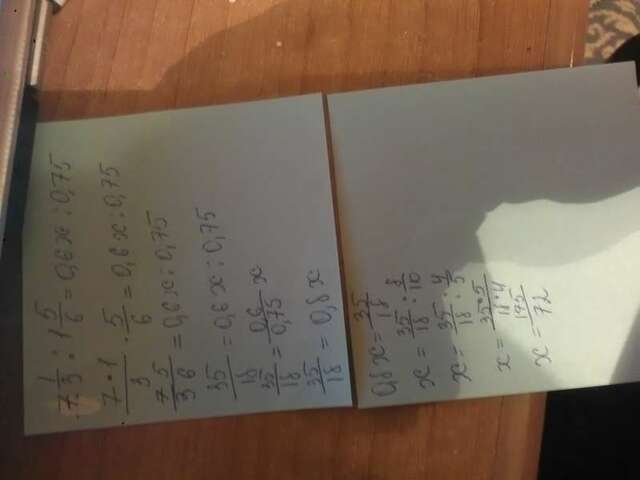 7 1/3 : 1 5/6 = 0,6x : 0,75
7·1/3 · 5/6 = 0,6x : 0,75
7/3 5/6 = 0,6x : 0,75
35/18 = 0,6x : 0,75
35/18 = 0,6/0,75 x
35/18 = 0,8x
0,8x = 35/18
x = 35/18 : 8/10
x = 35/18 : 4/5
x = 35·5/18·4
x = 175/72